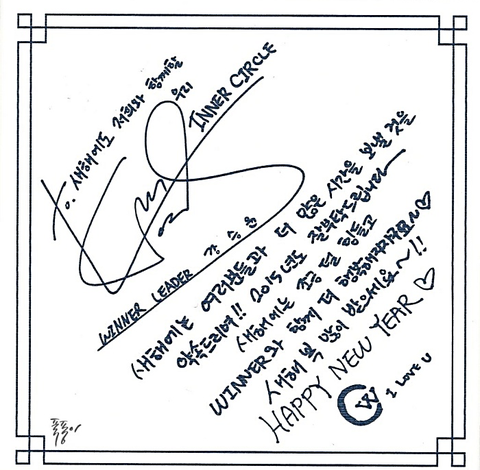 To. 새해에도 저희와 함께할
우리 INNER CIRCLE
WINNER LEADER 강승윤
새해에는 여러분들과 더 많은 시간을 보낼 것을
약속드리며!! 2015년도 잘부탁드립니다~
새해에는 조금 덜 힘들고
WINNER와 함께 더 행복해지자구요~♡
새해 복 많이 받으세요~!!
HAPPY NEW YEAR♡
W I LOVE U